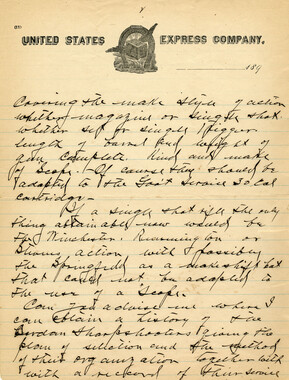 UNITED STATES EXPRESS COMPANY.
189
Covering the make style of action
whether magazine or single shot
whether set or single trigger
length of barrel and weight of
gun complete. Kind and make
of scope. Of course they should be
adapted to the Govt Service 30 Cal
cartridge.
In a single shot rifle the only
thing attainable now would be
the Winchester, Remmington or
action with possibly
the Springfield as a makeshift but
that could not be adapted to
the use of a Scope.
Can you advise me where I
can obtain a history of the
Berdan Sharpshooters giving the
plan of selection and the method
of their organization together with
with a record of their service